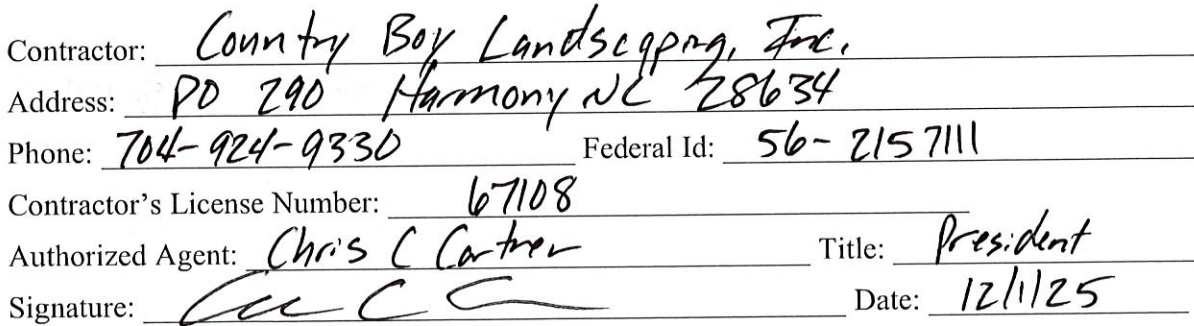 Contractor: Country Boy Landscaping, Inc.
Address: PO 290 Harmony NC 28634
Phone: 704-924-9330 Federal Id: 56-2157111
Contractor's License Number: 67108
Authorized Agent: Chris C Cartner Title: President
Signature: Date: 12/1/25